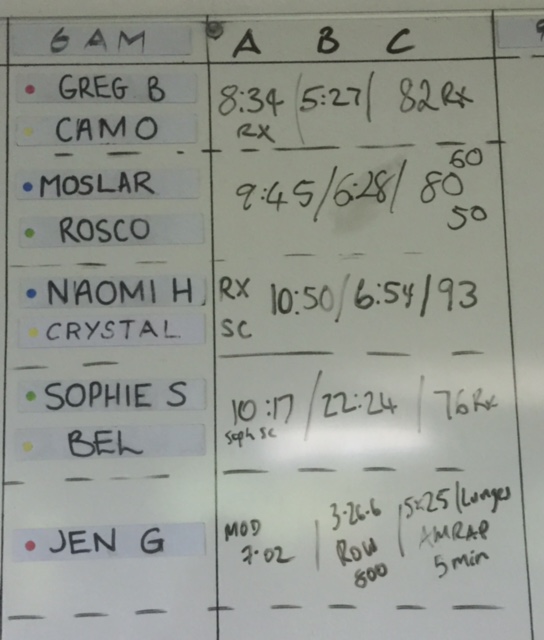 6 AM A B C
GREG B 8:34 / 5:27 / 82 Rx
CAMO RX
60
MOSLAR 9:45 / 6:28 / 80
ROSCO 50
NAOMI H RX 10:50 / 6:54 / 93
CRYSTAL SC
SOPHIE S 10:17 / 22:24 / 76 Rx
BEL Soph SC
JEN G MOD 7.02 | 3.26.6 ROW 800 | 5x25 / Lunges AMRAP 5 min